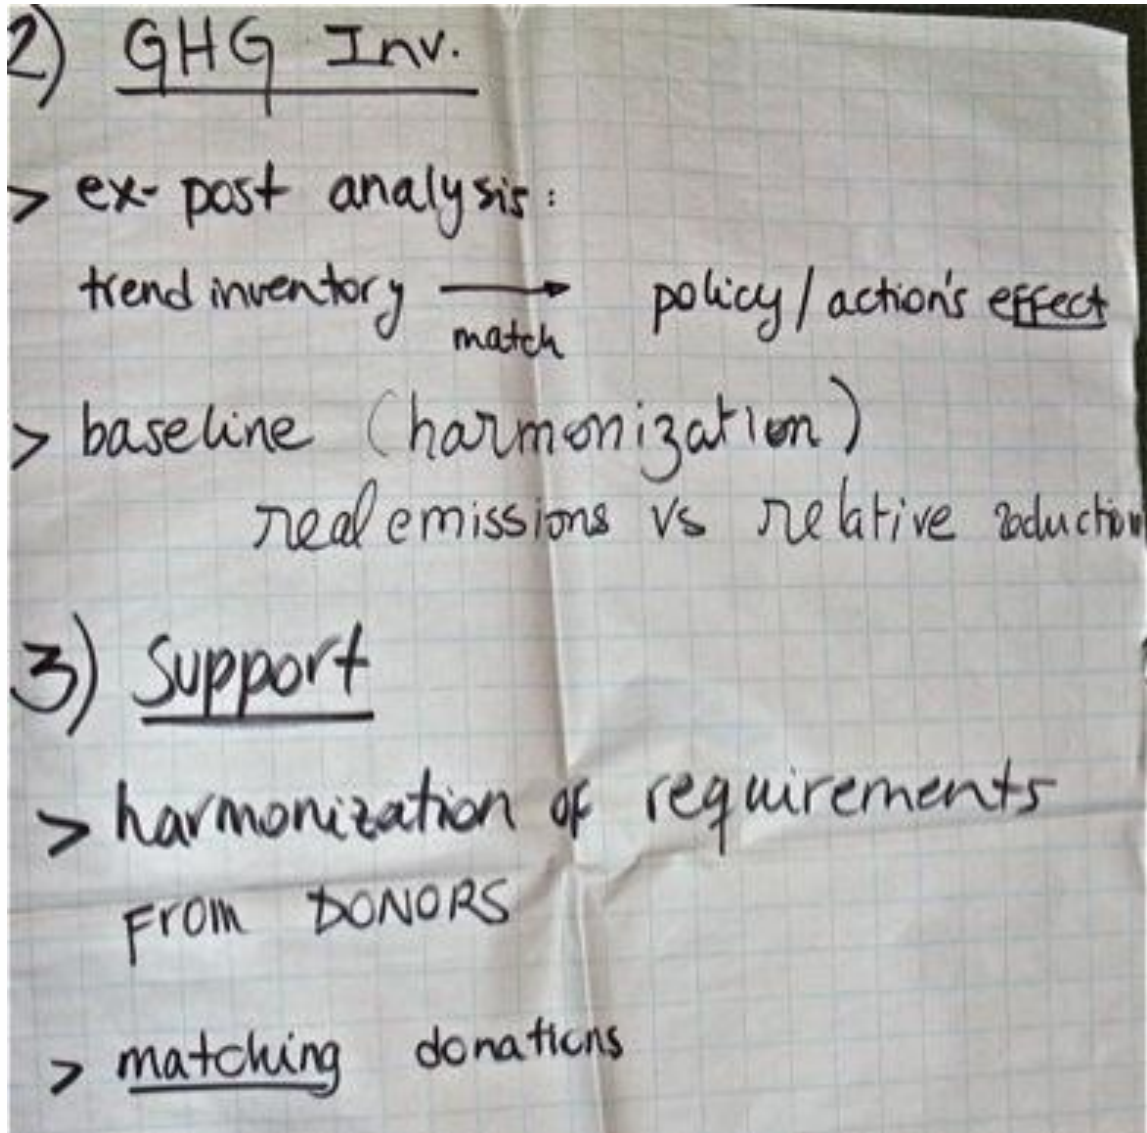 2) GHG Inv.
> ex-post analysis:
trend inventory → policy/action's effect
match
> baseline (harmonization)
real emissions vs relative reduction
3) Support
> harmonization of requirements
From DONORS
> matching donations